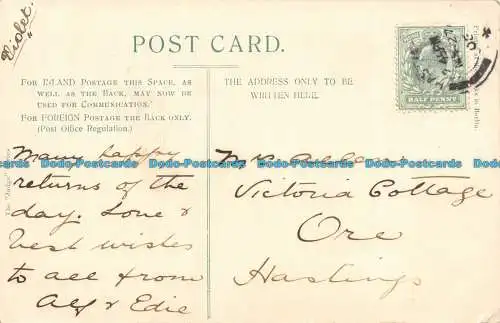 Violet.
POST CARD.
FOR INLAND POSTAGE THIS SPACE, AS
WELL AS THE BACK, MAY NOW BE
USED FOR COMMUNICATION.
FOR FOREIGN POSTAGE THE BACK ONLY.
(Post Office Regulation.)
THE ADDRESS ONLY TO BE
WRITTEN HERE.
HALF PENNY
in Berlin.
The "Judge"
Many happy
returns of the
day. Love &
best wishes
to all from
Alf & Edie
Mrs
Victoria Cottage
Ore
Hastings
Dodo-Postcards Dodo-Postcards Dodo-Postcards Dodo-Postcards